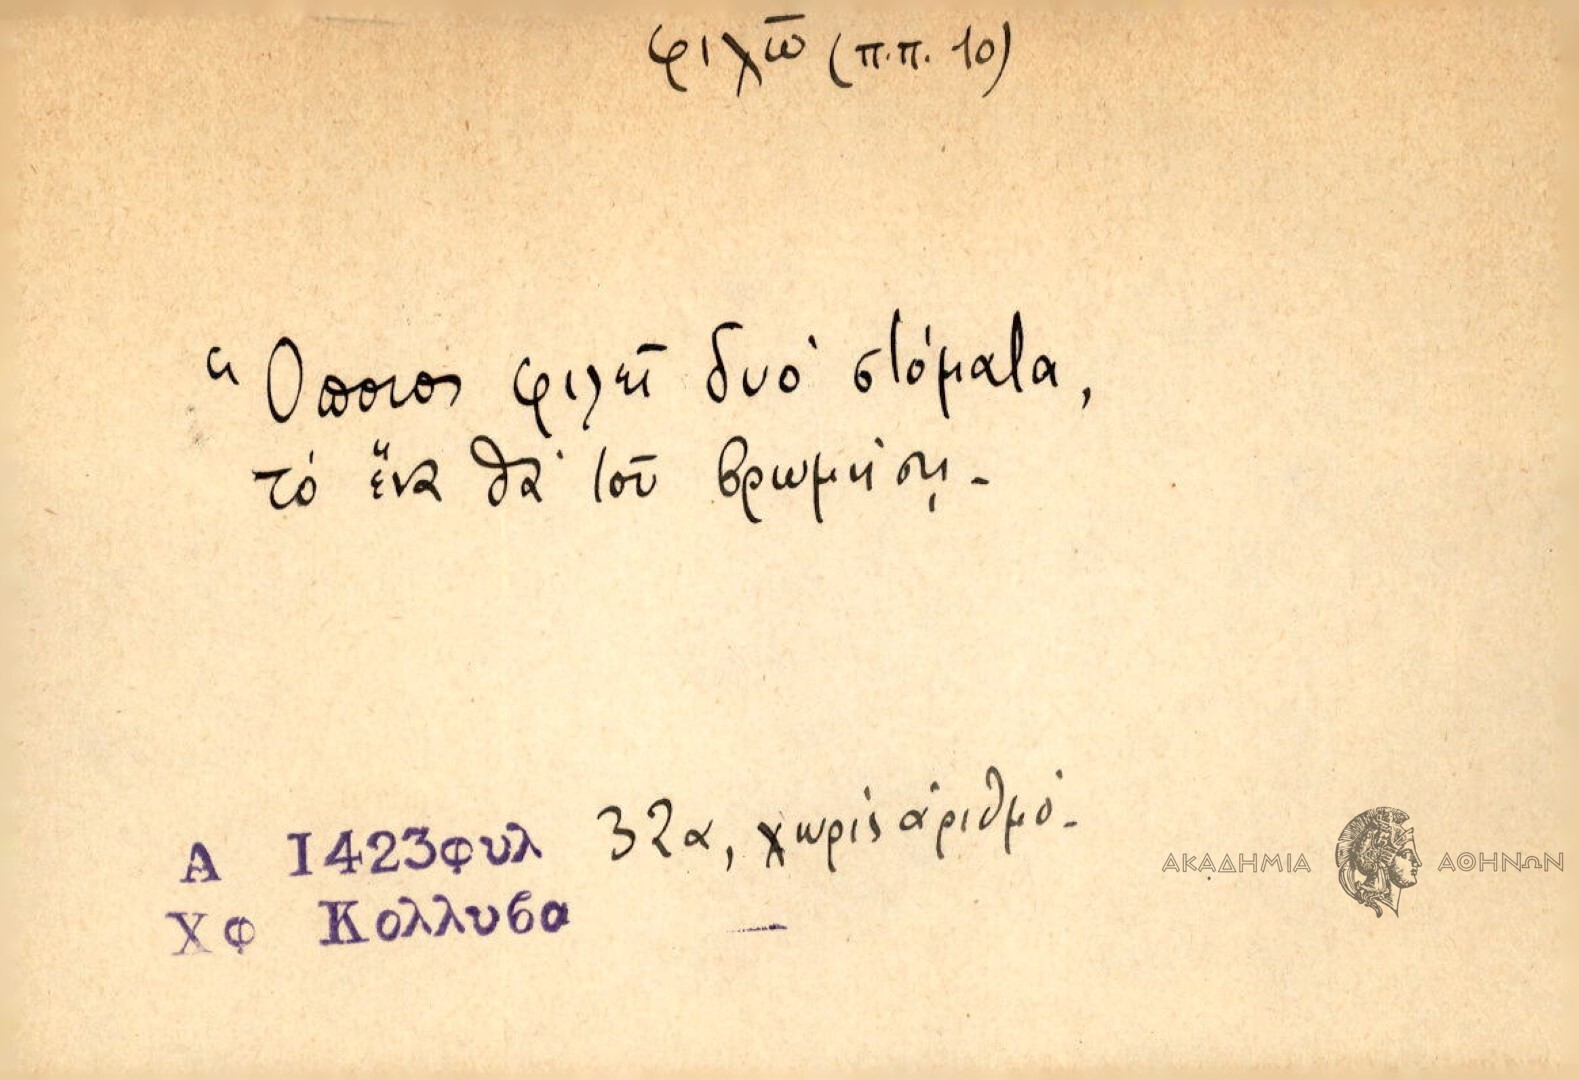 φιλῶ (π.π. 10)
Ὅποιος φιλεῖ δυὸ στόματα,
τό ἕνα θὰ τοῦ βρωμήσῃ.
Α 1423 φυλ 32α, χωρὶς ἀριθμό.
Χφ Κολλυβα
ΑΚΑΔΗΜΙΑ ΑΘΗΝΩΝ